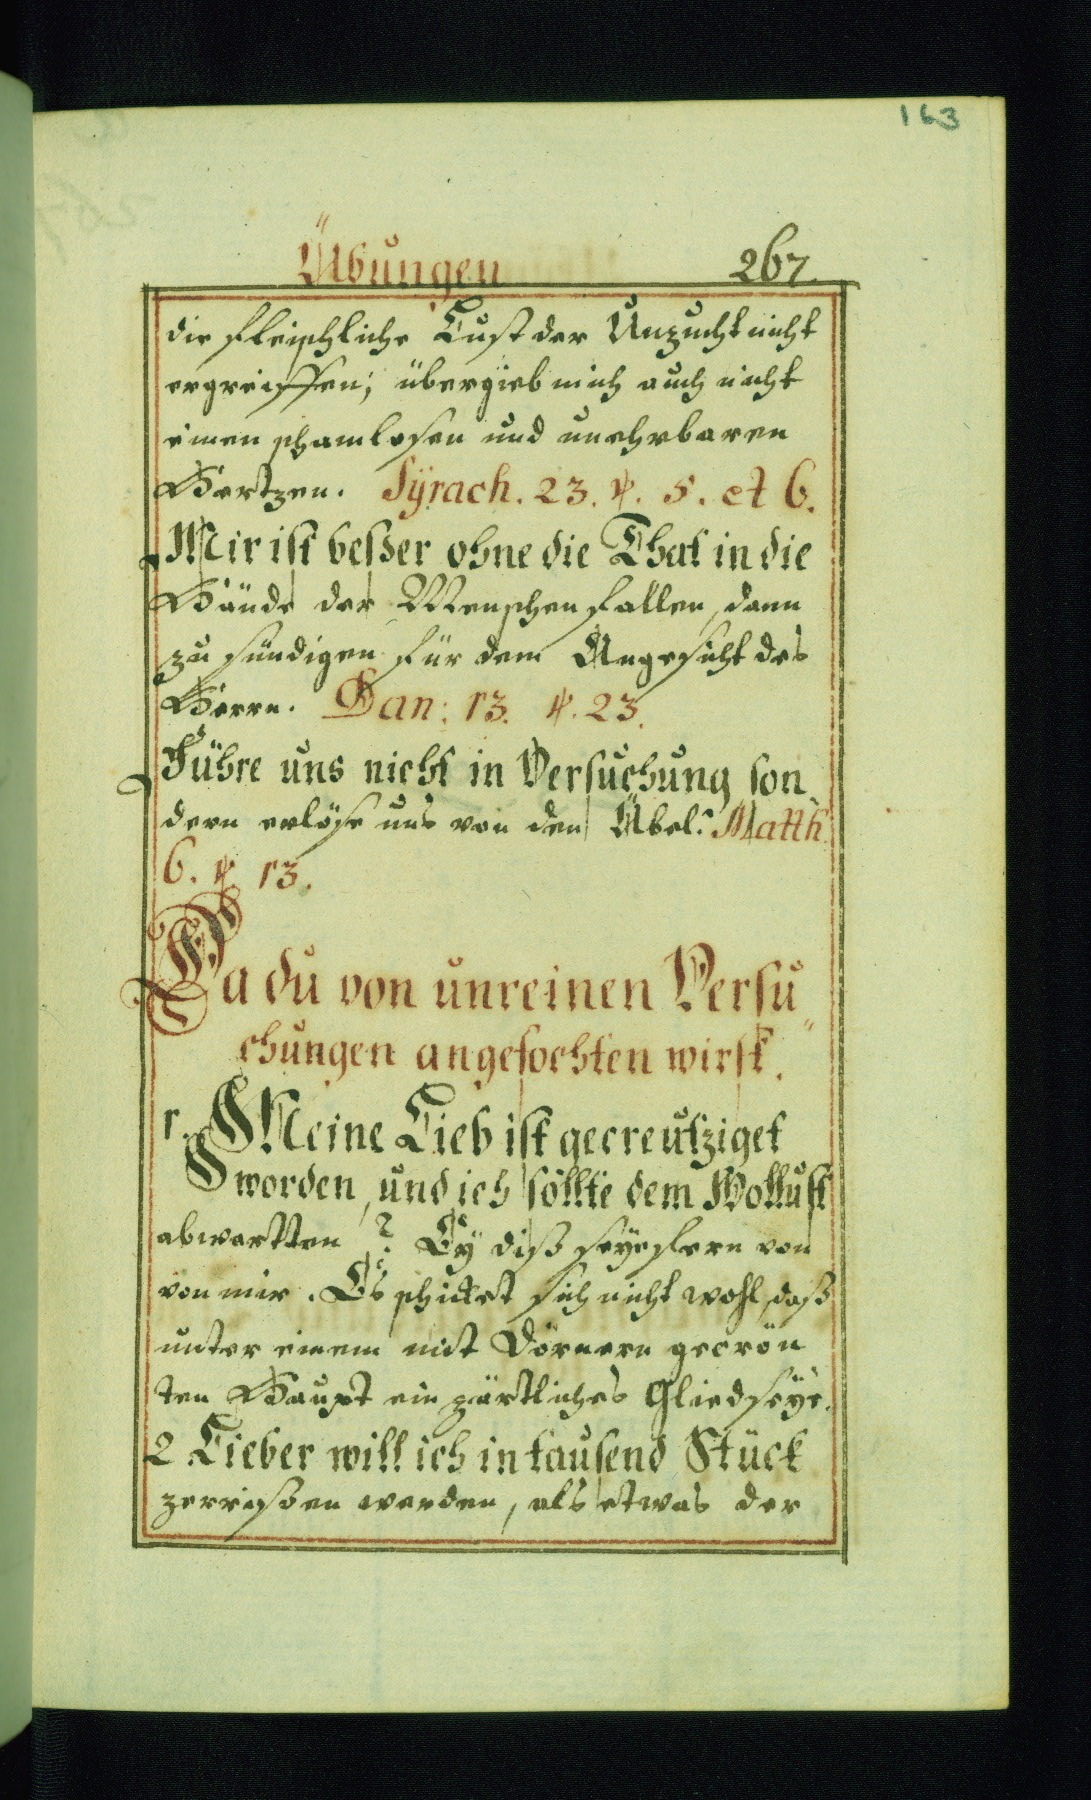 163
Übungen 267.
die fleischliche Lust der Unzucht nicht
ergreiffen; übergieb mich auch nicht
einen schamlosen und unehrbaren
Hertzen. Sÿrach. 23. ℣. 5. et 6.
Mir ist beßer ohne die That in die
Hände der Menschen fallen, dann
zu sündigen für dem Angesicht des
Herrn. Dan: 13. ℣. 23.
Führe uns nicht in Versuchung son
dern erlöse uns von den Übel. Matth
6. ℣ 13.
Da du von unreinen Versu
chungen angefochten wirst.
1. Meine Lieb ist gecreutziget
worden, und ich sollte dem Wollust
abwartten? Eÿ diß seÿe fern von
von mir. Es schicket sich nicht wohl, daß
unter einem mit Dörnern gecrön
ten Haupt ein zärtliches Glied seÿe.
2 Lieber will ich in tausend Stück
zerrißen werden, als etwas der